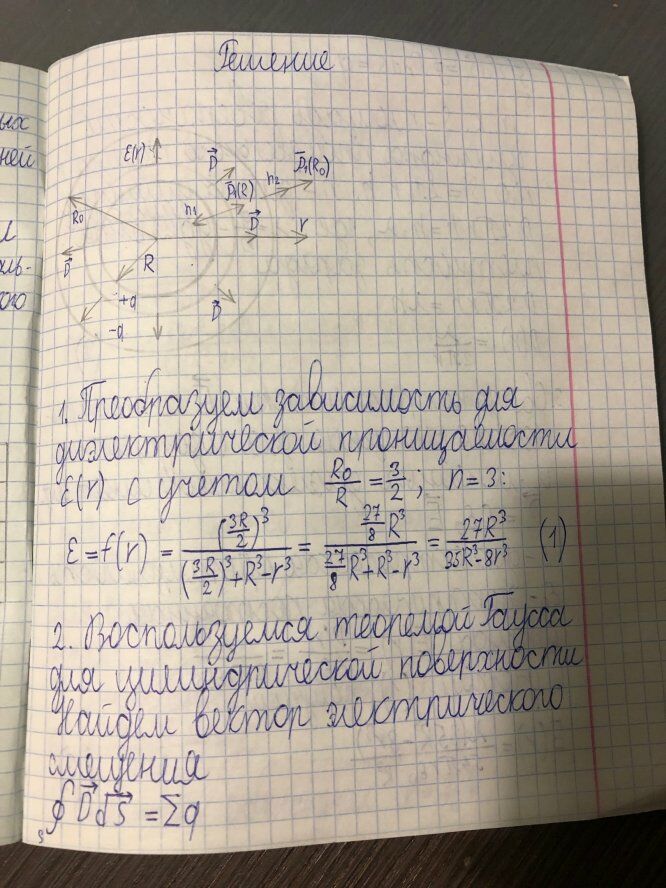 Решение
ε(r)
D⃗
n₂
D⃗₁(R₀)
D⃗₁(R)
n₁
R₀
D⃗
r
D⃗
R
+q
D⃗
-q
1. Преобразуем зависимость для
диэлектрической проницаемости
ε(r) с учетом R₀/R = 3/2; n=3:
ε = f(r) = (3R/2)³ / ((3R/2)³ + R³ - r³) = (27/8 R³) / (27/8 R³ + R³ - r³) = 27R³ / (35R³ - 8r³) (1)
2. Воспользуемся теоремой Гаусса
для цилиндрической поверхности
Найдем вектор электрического
смещения
∮ₛ D⃗ dS⃗ = Σq
ых
ней